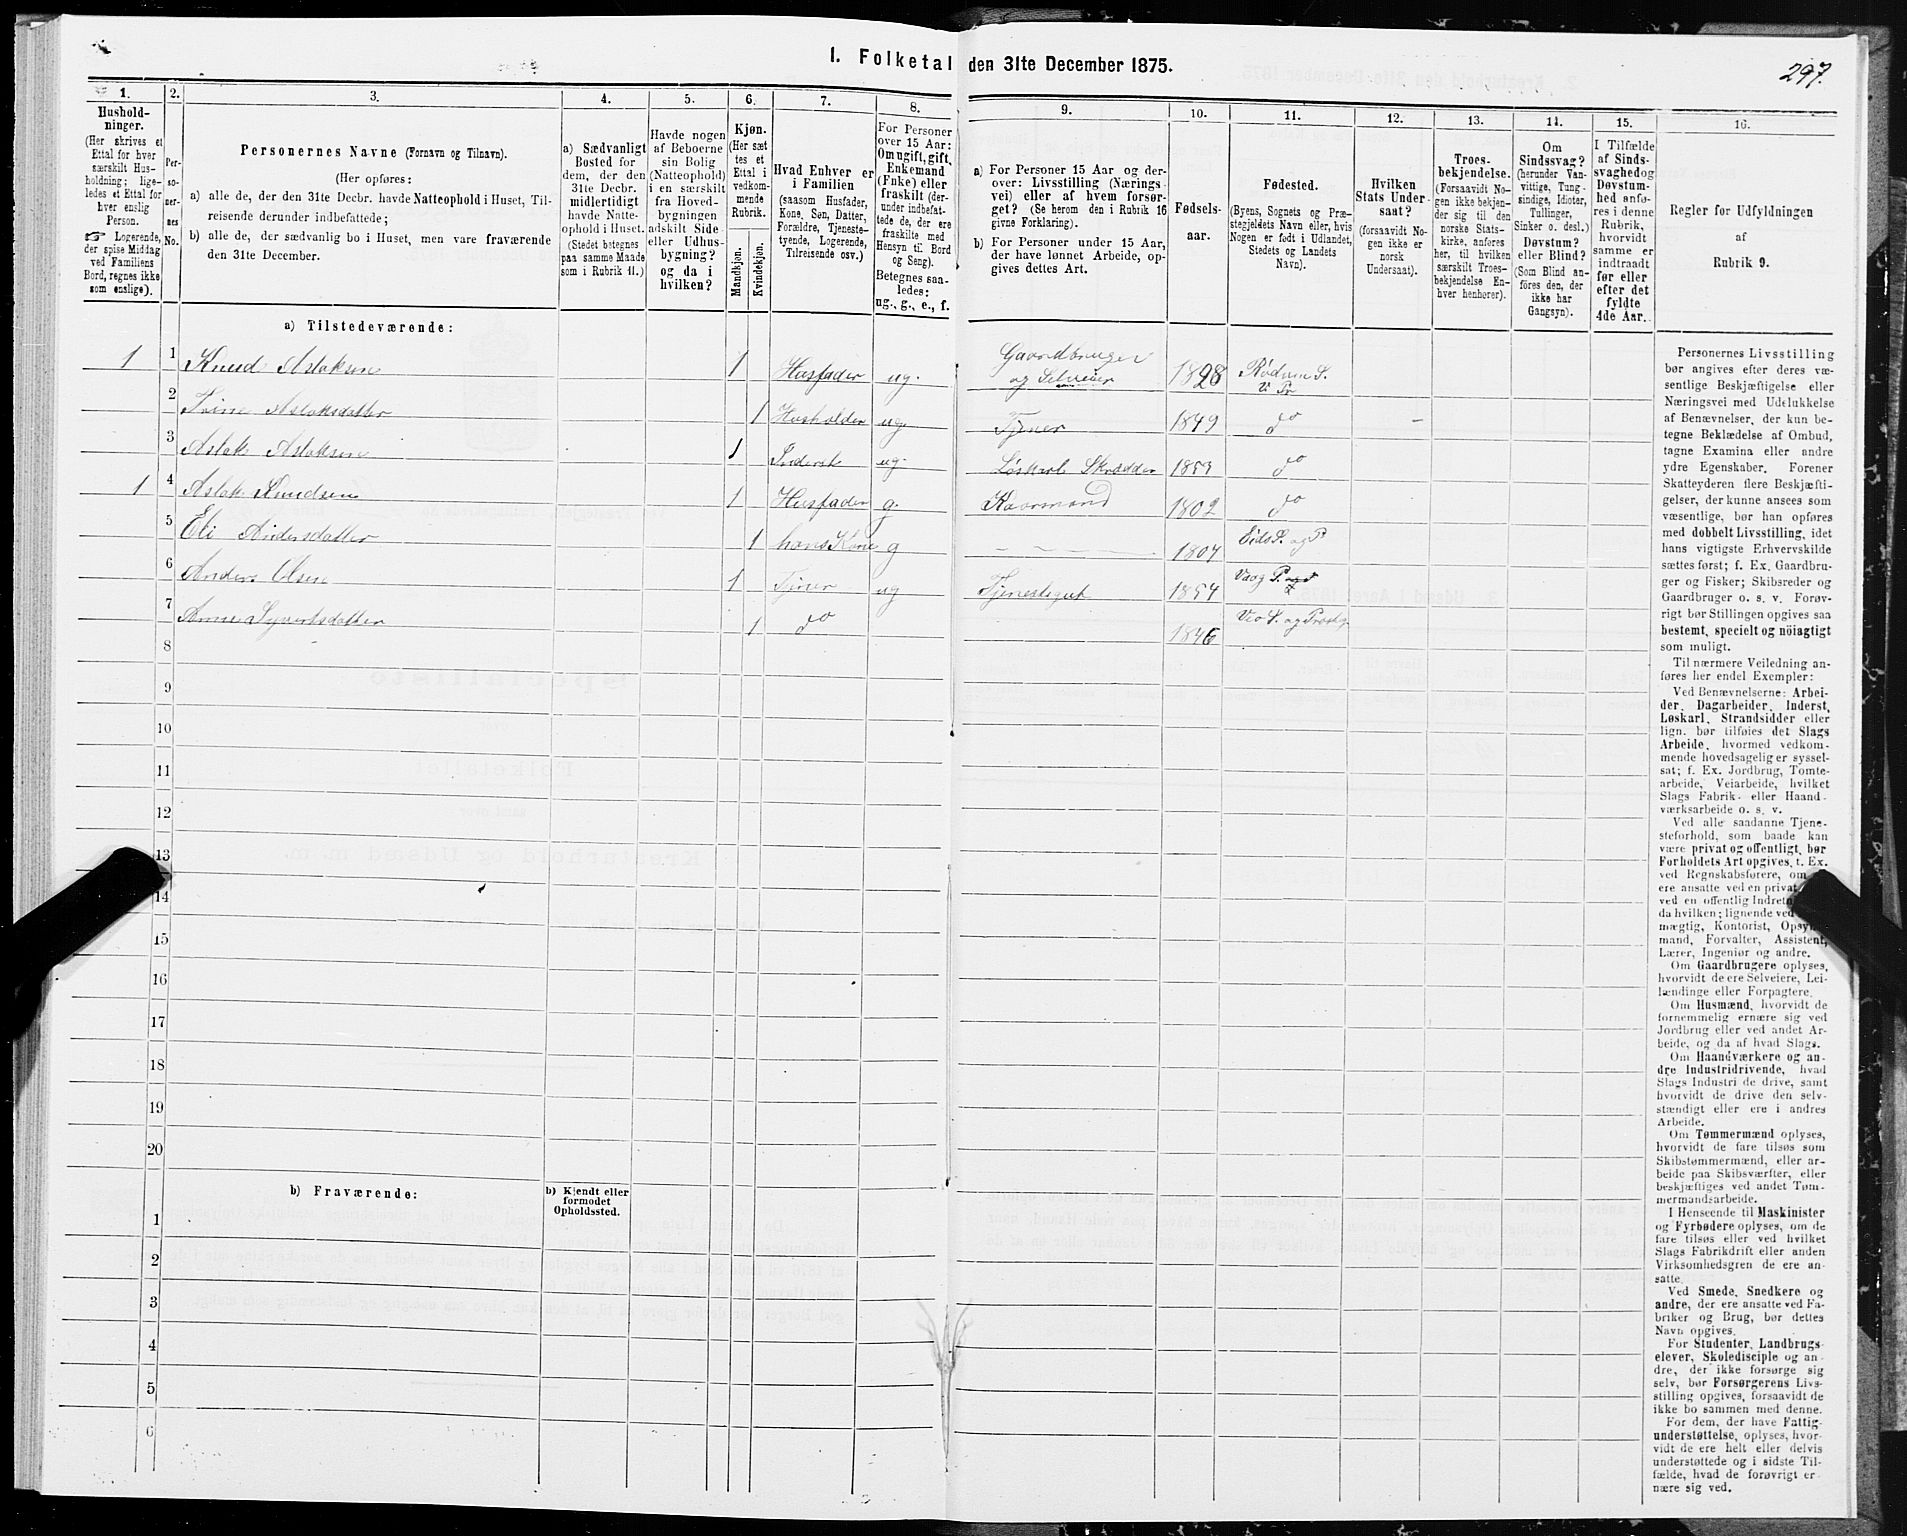 1. Folketal den 31te December 1875.
297.
1.
Hushold-
ninger.
(Her skrives et
Ettal for hver
særskilt Hus-
holdning; lige-
ledes et Ettal for
hver enslig
Person.
☞ Logerende,
der spise Middag
ved Familiens
Bord, regnes ikke
som enslige).
2.
Per-
so-
ner-
nes
No.
3.
Personernes Navne (Fornavn og Tilnavn).
(Her opføres:
a) alle de, der den 31te Decbr. havde Natteophold i Huset, Til-
reisende derunder indbefattede;
b) alle de, der sædvanlig bo i Huset, men vare fraværende
den 31te December.
4.
a) Sædvanligt
Bosted for
dem, der den
31te Decbr.
midlertidigt
havde Natte-
ophold i Huset.
(Stedet betegnes
paa samme Maade
som i Rubrik 11.)
5.
Havde nogen
af Beboerne
sin Bolig
(Natteophold)
i en særskilt
fra Hoved-
bygningen
adskilt Side-
eller Udhus-
bygning?
og da i
hvilken?
6.
Kjøn.
(Her sæt
tes et
Ettal i
vedkom-
mende
Rubrik.
Mandkjøn.
Kvindekjøn.
7.
Hvad Enhver er
i Familien
(saasom Husfader,
Kone, Søn, Datter,
Forældre, Tjeneste-
tyende, Logerende,
Tilreisende osv.)
8.
For Personer
over 15 Aar:
Om ugift, gift,
Enkemand
(Enke) eller
fraskilt (der-
under indbefat-
tede de, der ere
fraskilte med
Hensyn til Bord
og Seng).
Betegnes saa-
ledes:
ug., g., e., f.
9.
a) For Personer 15 Aar og der-
over: Livsstilling (Nærings-
vei) eller af hvem forsør-
get? (Se herom den i Rubrik 16
givne Forklaring).
b) For Personer under 15 Aar,
der have lønnet Arbeide, op-
gives dettes Art.
10.
Fødsels-
aar.
11.
Fødested.
(Byens, Sognets og Præ-
stegjeldets Navn eller, hvis
Nogen er født i Udlandet,
Stedets og Landets
Navn).
12.
Hvilken
Stats Under-
saat?
(forsaavidt No-
gen ikke er
norsk
Undersaat).
13.
Troes-
bekjendelse.
(Forsaavidt No-
gen ikke bekjen-
der sig til den
norske Stats-
kirke, anføres
her, til hvilken
særskilt Troes-
bekjendelse En-
hver henhører).
14.
Om
Sindssvag?
(herunder Van-
vittige, Tung-
sindige, Idioter,
Tullinger,
Sinker o. desl.)
Døvstum?
eller Blind?
(Som Blind an-
føres den, der
ikke har
Gangsyn).
15.
I Tilfælde
af Sinds-
svaghed og
Døvstum-
hed anfø-
res i denne
Rubrik,
hvorvidt
samme er
indtraadt
før eller
efter det
fyldte
4de Aar.
16.
Regler for Udfyldningen
af
Rubrik 9.
a) Tilstedeværende:
1 1 Knud Aslaksen 1 Husfader ug. Gaardbruger og Selveier 1828 S. V Pr
2 Trine Aslaksdatter 1 Husholder ug. Tjener 1849 do -
3 Aslak Aslaksen 1 Inderst ug. Løskarl Skrædder 1853 do
1 4 Aslak Knudsen 1 Husfader g. Kaarmand 1802 do
5 Eli Andersdatter 1 hans Kone g 1804 Eids S. og P
6 Anders Olsen 1 Tjener ug Tjenestegut 1854 P.
7 Anne Syvertsdatter 1 do 1846 S. og
8
9
10
11
12
13
14
15
16
17
18
19
20
b) Fraværende:
b) Kjendt eller
formodet
Opholdssted.
1
2
3
4
5
6
Personernes Livsstilling
bør angives efter deres væ-
sentlige Beskjæftigelse eller
Næringsvei med Udelukkelse
af Benævnelser, der kun be-
tegne Beklædelse af Ombud,
tagne Examina eller andre
ydre Egenskaber. Forener
Skatteyderen flere Beskjæfti-
gelser, der kunne ansees som
væsentlige, bør han opføres
med dobbelt Livsstilling, idet
hans vigtigste Erhvervskilde
sættes først; f. Ex. Gaardbru-
ger og Fisker; Skibsreder og
Gaardbruger o. s. v. Forøv-
rigt bør Stillingen opgives saa
bestemt, specielt og nøiagtigt
som muligt.
Til nærmere Veiledning an-
føres her endel Exempler:
Ved Benævnelserne: Arbei-
der, Dagarbeider, Inderst,
Løskarl, Strandsidder eller
lign. bør tilføies det Slags
Arbeide, hvormed vedkom-
mende hovedsagelig er syssel-
sat; f. Ex. Jordbrug, Tomte-
arbeide, Veiarbeide, hvilket
Slags Fabrik- eller Haand-
værksarbeide o. s. v.
Ved alle saadanne Tjene-
steforhold, som baade kan
være privat og offentligt, bør
Forholdets Art opgives, t. Ex.
ved Regnskabsførere, om
ere ansatte ved en privat
ved en offentlig
da hvilken; lignende ved
mægtig, Kontorist,
mand, Forvalter, Assistent,
Lærer, Ingeniør og andre.
Om Gaardbrugere oplyses,
hvorvidt de ere Selveiere, Lei-
lændinge eller Forpagtere.
Om Husmænd, hvorvidt de
fornemmelig ernære sig ved
Jordbrug eller ved andet Ar-
beide, og da af hvad Slags.
Om Haandværkere og an-
dre Industridrivende, hvad
Slags Industri de drive, samt
hvorvidt de drive den selv-
stændigt eller ere i andres
Arbeide.
Om Tømmermænd oplyses,
hvorvidt de fare tilsøs som
Skibstømmermænd, eller ar-
beide paa Skibsværfter, eller
beskjæftiges ved andet Tøm-
mermandsarbeide.
I Henseende til Maskinister
og Fyrbødere oplyses, om de
fare tilsøs eller ved hvilket
Slags Fabrikdrift eller anden
Virksomhedsgren de ere an-
satte.
Ved Smede, Snedkere og
andre, der ere ansatte ved Fa-
briker og Brug, bør dettes
Navn opgives.
For Studenter, Landbrugs-
elever, Skoledisciple og an-
dre, der ikke forsørge sig
selv, bør Forsørgerens Livs-
stilling opgives, forsaavidt de
ikke bo sammen med denne.
For dem, der have Fattig-
understøttelse, oplyses, hvor-
vidt de ere helt eller delvis
understøttede og i sidste Til-
fælde, hvad de forøvrigt er-
nære sig ved.